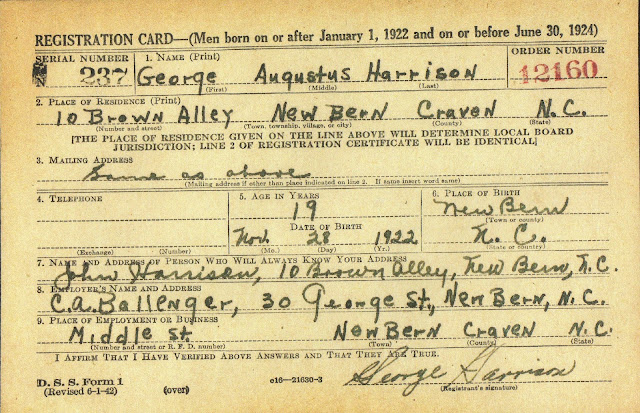 REGISTRATION CARD—(Men born on or after January 1, 1922 and on or before June 30, 1924)
SERIAL NUMBER
N 237
1. NAME (Print)
George Augustus Harrison
(First) (Middle) (Last)
ORDER NUMBER
12160
2. PLACE OF RESIDENCE (Print)
10 Brown Alley New Bern Craven N.C.
(Number and street) (Town, township, village, or city) (County) (State)
[THE PLACE OF RESIDENCE GIVEN ON THE LINE ABOVE WILL DETERMINE LOCAL BOARD
JURISDICTION; LINE 2 OF REGISTRATION CERTIFICATE WILL BE IDENTICAL]
3. MAILING ADDRESS
Same as above
(Mailing address if other than place indicated on line 2. If same insert word same)
4. TELEPHONE
(Exchange) (Number)
5. AGE IN YEARS
19
DATE OF BIRTH
Nov. 28 1922
(Mo.) (Day) (Yr.)
6. PLACE OF BIRTH
New Bern
(Town or county)
N. C.
(State or country)
7. NAME AND ADDRESS OF PERSON WHO WILL ALWAYS KNOW YOUR ADDRESS
John Harrison, 10 Brown Alley, New Bern, N.C.
8. EMPLOYER'S NAME AND ADDRESS
C.A. Ballenger, 30 George St., New Bern, N.C.
9. PLACE OF EMPLOYMENT OR BUSINESS
Middle St. New Bern Craven N.C.
(Number and street or R. F. D. number) (Town) (County) (State)
I AFFIRM THAT I HAVE VERIFIED ABOVE ANSWERS AND THAT THEY ARE TRUE.
D. S. S. Form 1
(Revised 6-1-42) (over) c16—21630-3
George Harrison
(Registrant's signature)